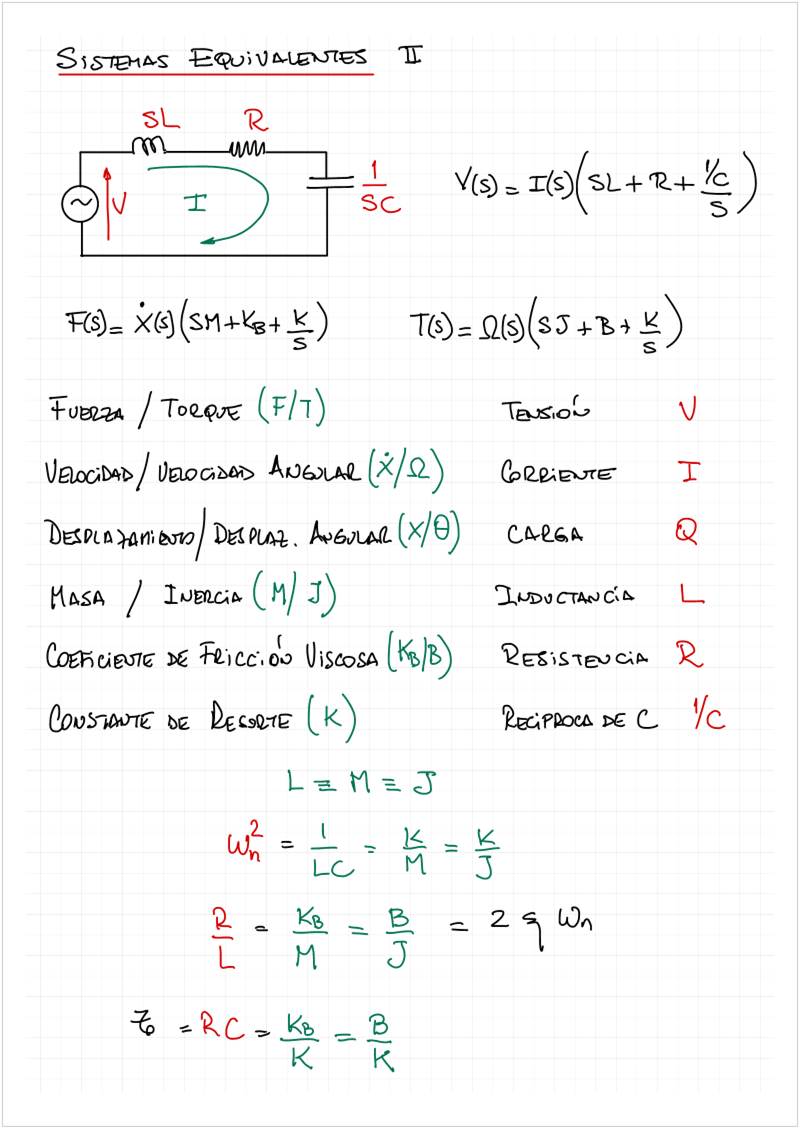 SISTEMAS EQUIVALENTES II
SL R
V I 1/SC V(s) = I(s)(SL + R + 1/C/S)
F(s) = Ẋ(s)(SM + K_B + K/S) T(s) = Ω(s)(SJ + B + K/S)
FUERZA / TORQUE (F/T) TENSIÓN V
VELOCIDAD / VELOCIDAD ANGULAR (Ẋ/Ω) CORRIENTE I
DESPLAZAMIENTO / DESPLAZ. ANGULAR (X/θ) CARGA Q
MASA / INERCIA (M/J) INDUCTANCÍA L
COEFICIENTE DE FRICCIÓN VISCOSA (K_B/B) RESISTENCIA R
CONSTANTE DE RESORTE (K) RECÍPROCA DE C 1/C
L ≡ M ≡ J
ω_n² = 1/LC = K/M = K/J
R/L = K_B/M = B/J = 2 ς ω_n
= RC = K_B/K = B/K